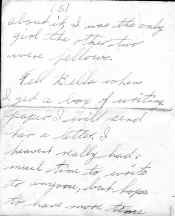 (5)
about it, I was the only
girl the other two
were fellows.
Well Bella when
I get a box of writing
paper I will send
her a letter. I
havent really had
much time to write
to anyone, but hope
to have more time